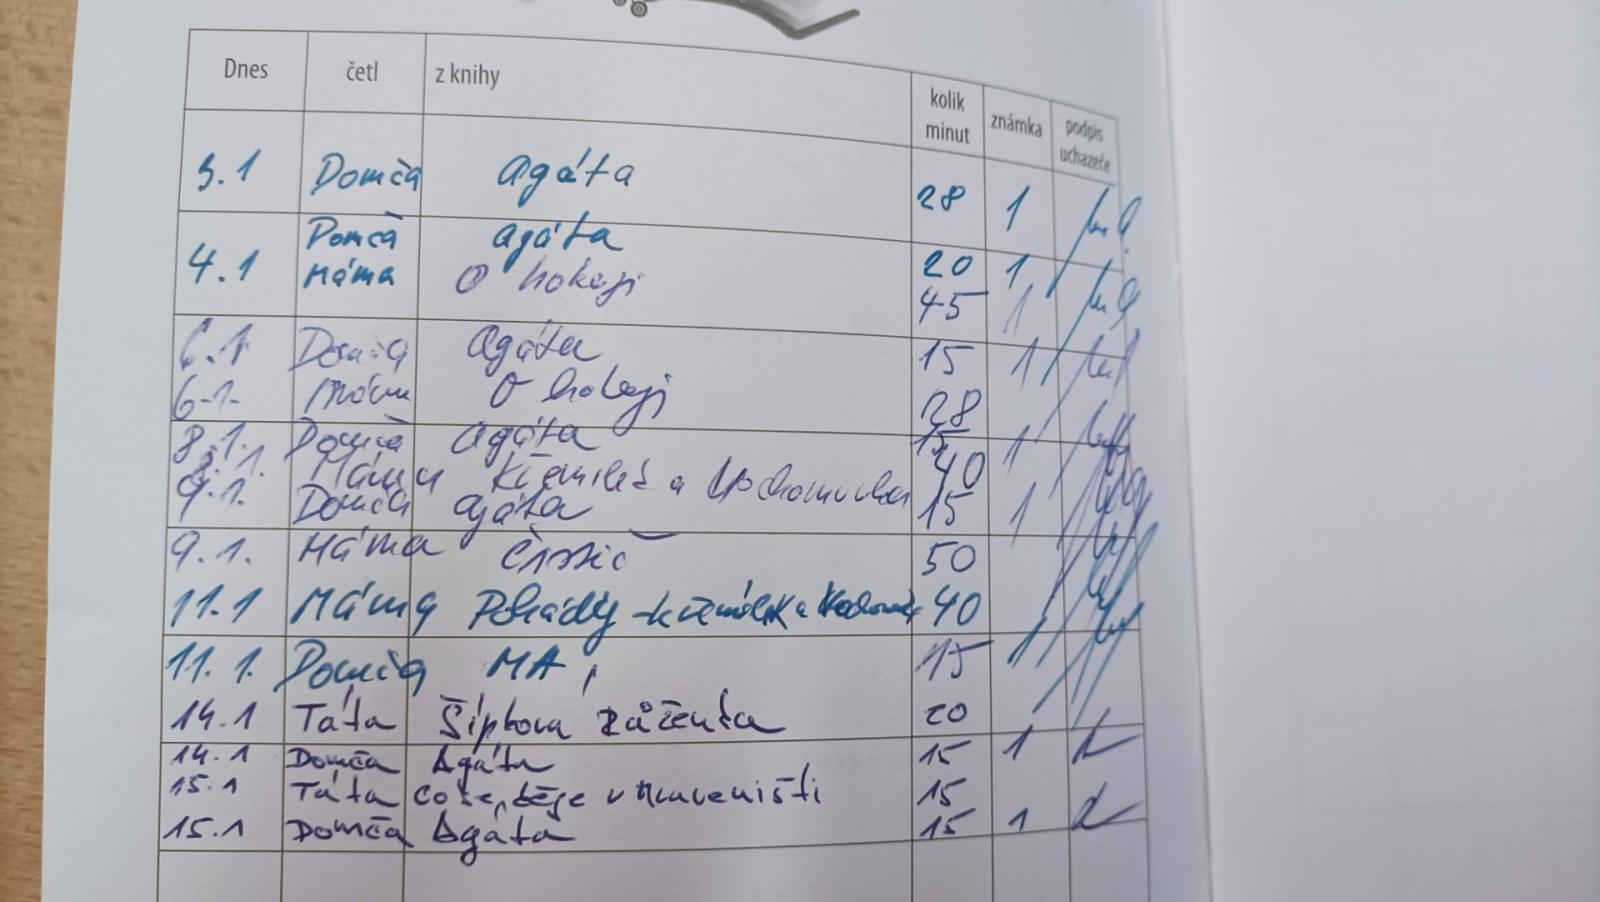 Dnes četl z knihy kolik minut známka podpis uchazeče
3.1 Domča Agáta 28 1
4.1 Domča Agáta 20 1
Máma O hokeji 45 1
6.1 Domča Agáta 15 1
6.1. Máma O hokeji 28
8.1. Domča Agáta 15 1
8.1. Máma Křemílek a Vochomůrka 40
9.1. Domča Agáta 15 1
9.1. Máma 50
11.1 Máma Pohádky - Křemílek a 40
11.1. Domča MA 15 1
14.1 Táta Šípková Růženka 20
14.1 Domča Agáta 15 1
15.1 Táta Co se děje v mraveništi 15
15.1 Domča Agáta 15 1